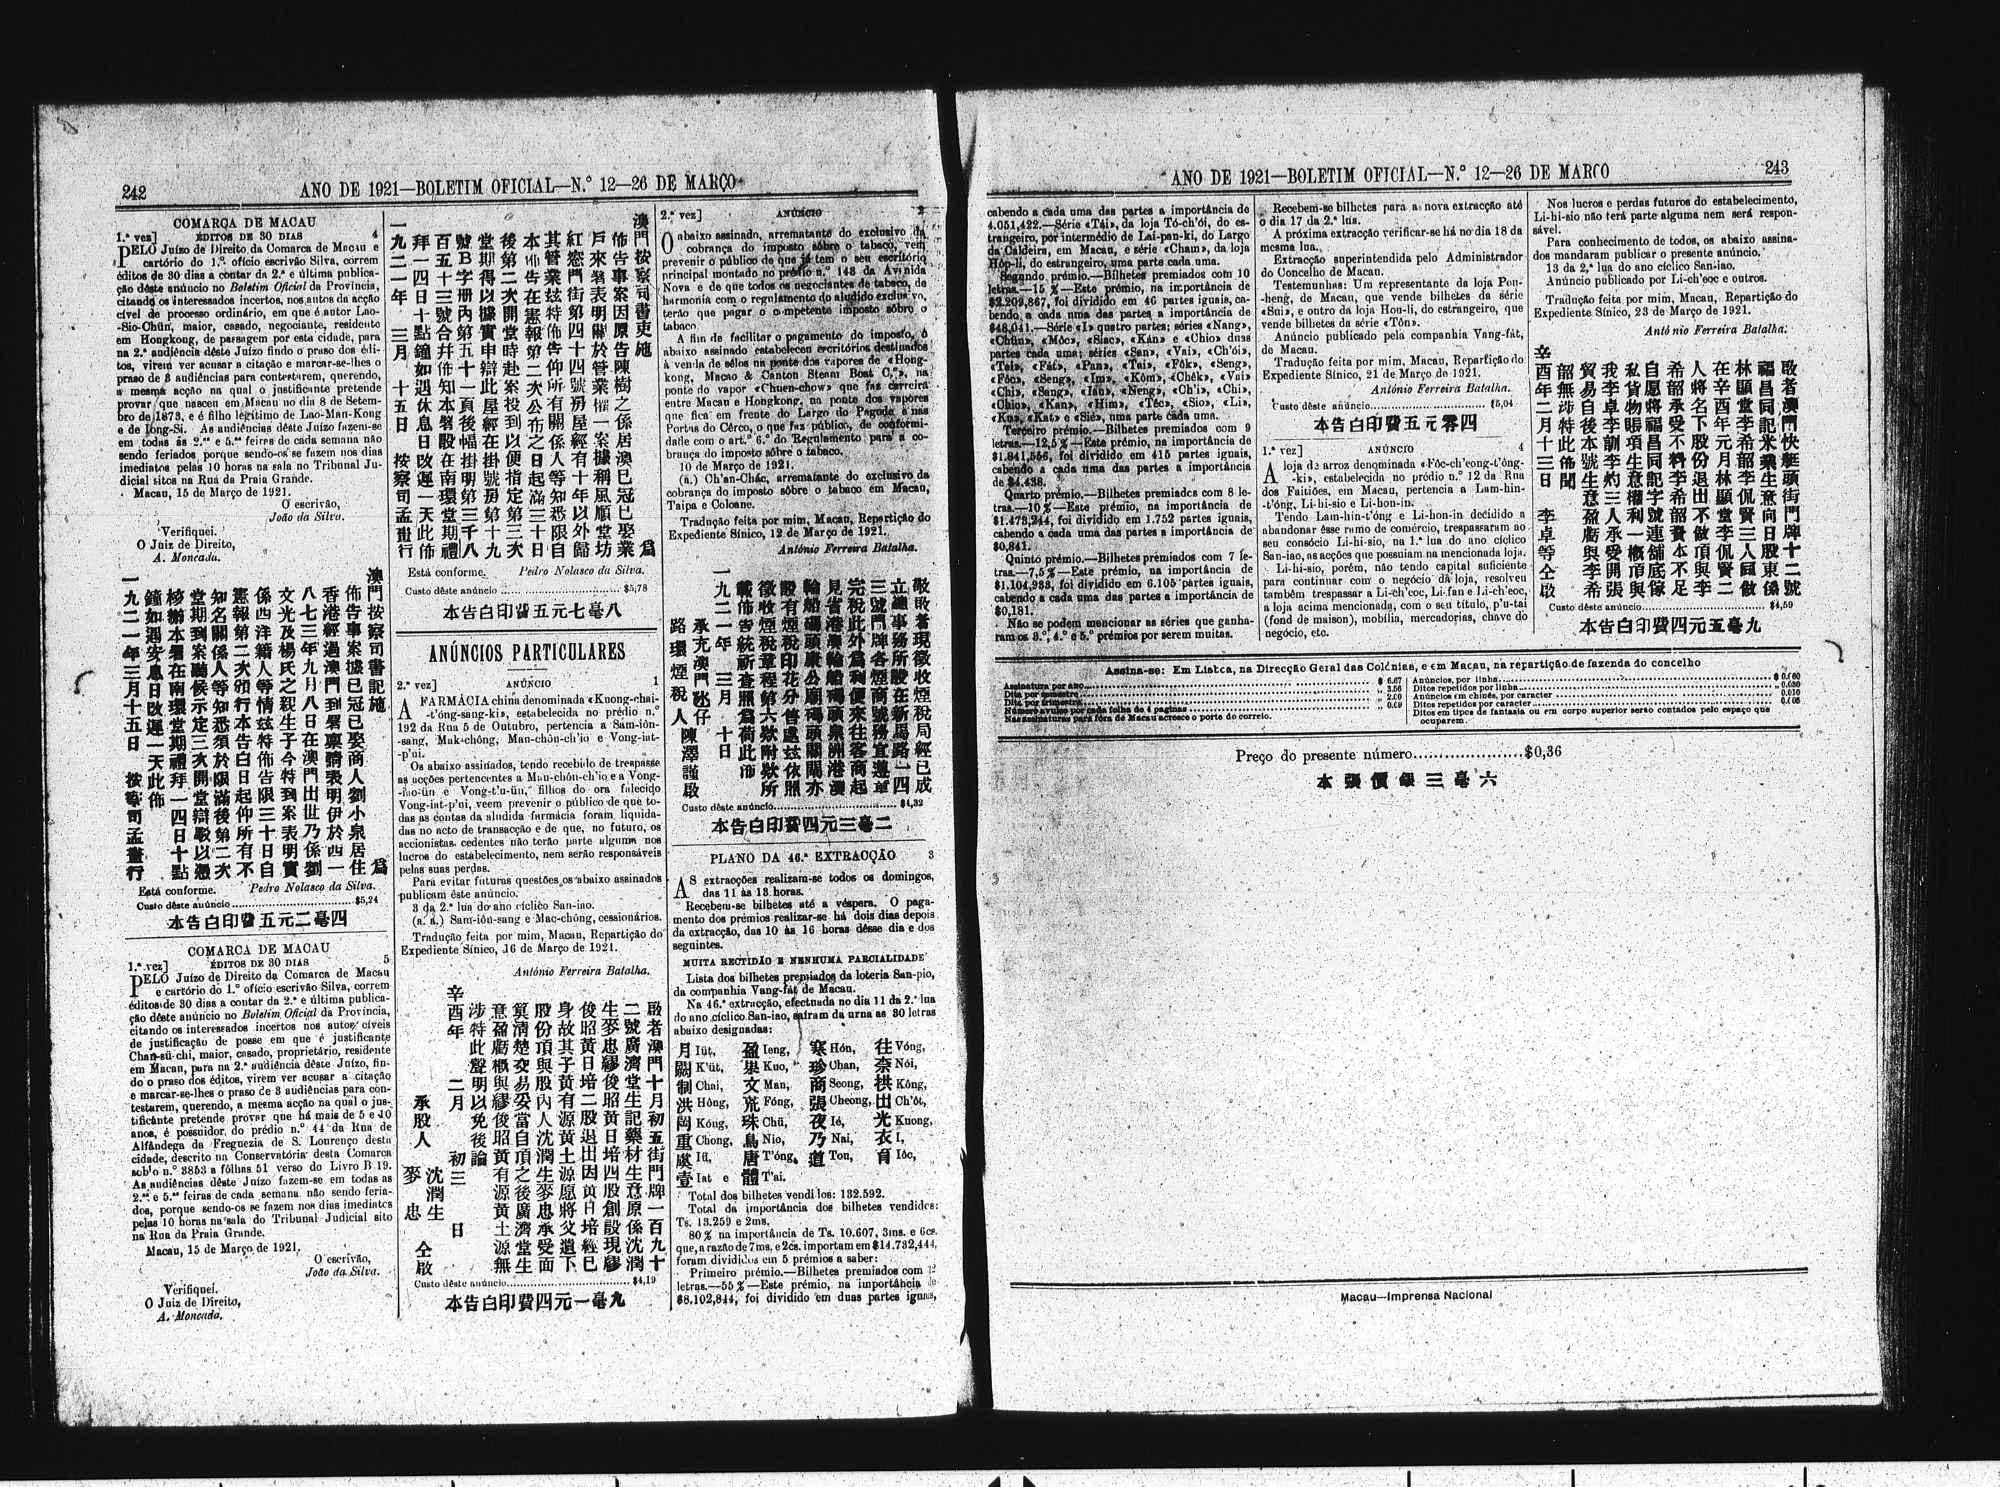 242
ANO DE 1921—BOLETIM OFICIAL—N.º 12—26 DE MARÇO
COMARCA DE MACAU
1.ª vez] ÉDITOS DE 30 DIAS 4
PELO Juízo de Direito da Comarca de Macau e
cartório do 1.º ofício escrivão Silva, correm
éditos de 30 dias a contar da 2.ª e última publica-
ção dêste anúncio no Boletim Oficial da Província,
citando os interessados incertos, nos autos da acção
cível de processo ordinário, em que é autor Lao-
Sio-Chün, maior, casado, negociante, residente
em Hongkong, de passagem por esta cidade, para
na 2.ª audiência dêste Juízo findo o praso dos édi-
tos, virem ver acusar a citação e marcar-se-lhes o
praso de 3 audiências para contestarem, querendo,
a mesma acção na qual o justificante pretende
provar que nasceu em Macau no dia 8 de Setem-
bro de 1873, e é filho legítimo de Lao-Man-Kong
e de Iong-Si. As audiências dêste Juízo fazem-se
em todas as 2.ªˢ e 5.ªˢ feiras de cada semana não
sendo feriados porque sendo-os se fazem nos dias
imediatos pelas 10 horas na sala no Tribunal Ju-
dicial sitos na Rua da Praia Grande.
Macau, 15 de Março de 1921.
O escrivão,
João da Silva.
Verifiquei.
O Juiz de Direito,
A. Moncada.
澳門按察司書記施 爲
佈告事案據已冠已娶商人劉小泉居住
香港經過澳門到署禀請表明伊於西一
八七三年九月八日在澳門出世乃係劉
文光及楊氏之親生子今特到案表明實
係西洋籍人等情茲特佈告限三十日自
憲報第二次頒行本告白日起仰所有不
知名關係人等知悉須於限滿後第二次
堂期到案聽候示定三次開堂辯駁以憑
鐘如遇安息日改遲一天此佈
一九二一年三月十五日 按察司孟畫行
Está conforme. Pedro Nolasco da Silva.
Custo dêste anúncio $5,24
四毫二元五費印白告本
COMARCA DE MACAU
1.ª vez] ÉDITOS DE 30 DIAS 5
PELO Juízo de Direito da Comarca de Macau
e cartório do 1.º ofício escrivão Silva, correm
éditos de 30 dias a contar da 2.ª e última publica-
ção dêste anúncio no Boletim Oficial da Província,
citando os interessados incertos nos autos cíveis
de justificação de posse em que é justificante
Chan-sü-chi, maior, casado, proprietário, residente
em Macau, para na 2.ª audiência dêste Juízo, fin-
do o praso dos éditos, virem ver acusar a citação
e marcar-se-lhes o praso de 3 audiências para con-
testarem, querendo, a mesma acção na qual o jus-
tificante pretende provar que há mais de 5 e 10
anos, é possuidor do prédio n.º 44 da Rua de
Alfândega da Freguezia de S. Lourenço desta
cidade, descrito na Conservatória desta Comarca
sob o n.º 3853 a fôlhas 51 verso do Livro B 19.
As audiências dêste Juízo fazem-se em todas as
2.ªˢ e 5.ªˢ feiras de cada semana não sendo feria-
dos, porque sendo-os se fazem nos dias imediatos
pelas 10 horas na sala do Tribunal Judicial sito
na Rua da Praia Grande.
Macau, 15 de Março de 1921.
O escrivão,
João da Silva.
Verifiquei.
O Juiz de Direito,
A. Moncada.
澳門按察司書吏施 爲
佈告事案因原告陳樹之係居澳已冠已娶業
戶來署表明關於管業 一案據稱風順堂坊
紅窓門街第四十四號房屋經有十年以外歸
其管業茲特佈告仰所有關係人等知悉限自
本佈告在憲報第二次公布之日起滿三十日
後第二次開堂時赴案投到以便指定第三次
堂期得以據實申辯此屋經在掛號房第十九
號B字册內第五十一頁後幅掛明第三千八
百五十三號合并佈知本署殷在南環堂期禮
拜一四日十點鐘如遇休息日改遲一天此佈
一九二一年 三月 十五日 按察司孟畫行
Está conforme. Pedro Nolasco da Silva.
Custo dêste anúncio $5,78
八毫七元五費印白告本
ANÚNCIOS PARTICULARES
2.ª vez] ANÚNCIO 1
A FARMÁCIA china denominada «Kuong-chai-
-t'óng-sang-ki», estabelecida no prédio n.º
192 da Rua 5 de Outubro, pertencia a Sam-iôn-
-sang, Mak-chông, Man-chôn-ch'io e Vong-iat-
-p'ui.
Os abaixo assinados, tendo recebido de trespasse
as acções pertencentes a Mau-chôn-ch'io e a Vong-
-iao-ün e Vong-t'u-ün, filhos do ora falecido
Vong-iat-p'ui, veem prevenir o público de que to-
das as contas da aludida farmácia foram liquida-
das no acto de transacção e de que, no futuro, os
accionistas cedentes não terão parte alguma nos
lucros do estabelecimento, nem serão responsáveis
pelas suas perdas.
Para evitar futuras questões os abaixo assinados
publicam êste anúncio.
3 da 2.ª lua do ano cíclico San-iao.
(a. a.) Sam-iôn-sang e Mac-chông, cessionários.
Tradução feita por mim, Macau, Repartição do
Expediente Sínico, 16 de Março de 1921.
António Ferreira Batalha.
啟者澳門十月初五街門牌一百九十
二號廣濟堂生記藥材生意原係沈潤
生麥忠繆俊昭黃日培四股創設現繆
俊昭黃日培二股退出因黃日培經已
身故其子黃有源黃土源愿將父遺下
股份頂與股內人沈潤生麥忠承受面
算清楚交易妥當自頂之後廣濟堂生
意盈虧概與繆俊昭黃有源黃土源無
涉特此聲明以免後論
辛酉年 二月 初三 日
承股人 沈潤生 麥忠 仝啟
Custo dêste anúncio $4,19
九毫一元四費印白告本
2.ª vez] ANÚNCIO 2
O abaixo assinado, arrematante do exclusivo da
cobrança do imposto sôbre o tabaco, vem
prevenir o público de que já tem o seu escritório
principal montado no prédio n.º 143 da Avenida
Nova e de que todos os negociantes de tabaco, de
harmonia com o regulamento do aludido exclusivo,
terão que pagar o competente imposto sôbre o
tabaco.
A fim de facilitar o pagamento do imposto, o
abaixo assinado estabeleceu escritórios destinados
à venda de sêlos na ponte dos vapores de «Hong-
kong, Macao & Canton Steam Boat C.º», na
ponte do vapor «Chuen-chow» que faz carreira
entre Macau e Hongkong, na ponte dos vapores
que fica em frente do Largo do Pagode e nas
Portas do Cêrco, o que faz público, de conformi-
dade com o art.º 6.º do Regulamento para a co-
brança do imposto sôbre o tabaco.
10 de Março de 1921.
(a.) Ch'an-Chác, arrematante do exclusivo da
cobrança do imposto sôbre o tabaco em Macau,
Taipa e Coloane.
Tradução feita por mim, Macau, Repartição do
Expediente Sínico, 12 de Março de 1921.
António Ferreira Batalha.
敬啟者現徵收煙稅局經已成
立總事務所設在新馬路一四
三號門牌各煙商號務宜遵章
完稅此外爲利便來往客商起
見省港澳輪船碼頭泉洲港澳
輪船碼頭康公廟碼頭關閘亦
設有煙稅印花分售處茲依照
徵收煙稅章程第六欵附欵所
載佈告統祈查照爲荷此佈
一九二一年 三月 十日
承充澳門氹仔
路環煙稅人陳澤謹啟
Custo dêste anúncio $4,32
二毫三元四費印白告本
PLANO DA 46.ª EXTRACÇÃO 3
AS extracções realizam-se todos os domingos,
das 11 às 13 horas.
Recebem-se bilhetes até a véspera. O paga-
mento dos prémios realizar-se há dois dias depois
da extracção, das 10 às 16 horas dêsse dia e dos
seguintes.
MUITA RECTIDÃO E NENHUMA PARCIALIDADE
Lista dos bilhetes premiados da loteria San-pio,
da companhia Vang-fát de Macau.
Na 46.ª extracção, efectuada no dia 11 da 2.ª lua
do ano cíclico San-iao, saíram da urna as 30 letras
abaixo designadas:
月 Iüt, 盈 Ieng, 寒 Hón, 往 Vóng,
闕 K'üt, 果 Kuo, 珍 Chan, 奈 Nói,
制 Chai, 文 Man, 商 Seong, 拱 Kông,
洪 Hông, 荒 Fóng, 張 Cheong, 出 Ch'öt,
岡 Kóng, 珠 Chü, 夜 Ié, 光 Kuong,
重 Chong, 鳥 Nio, 乃 Nai, 衣 I,
虞 Iü, 唐 T'óng, 道 Tou, 育 Iôc,
壹 Iat e 體 T'ai.
Total dos bilhetes vendidos: 132.592.
Total da importância dos bilhetes vendidos:
Ts. 13.259 e 2ms.
80 % na importância de Ts. 10.607, 3ms. e 6cs.
que, a razão de 7ms, e 2cs. importam em $14.732,444,
foram divididos em 5 prémios a saber:
Primeiro prémio.—Bilhetes premiados com 12
letras.—55 %—Este prémio, na importância de
$8.102,844, foi dividido em duas partes iguais,
243
ANO DE 1921—BOLETIM OFICIAL—N.º 12—26 DE MARÇO
cabendo a cada uma das partes a importância de
4.051,422.—Série «Tái», da loja Tó-ch'ói, do es-
trangeiro, por intermédio de Lai-pan-ki, do Largo
da Caldeira, em Macau, e série «Cham», da loja
Hôp-li, do estrangeiro, uma parte cada uma.
Segundo prémio.—Bilhetes premiados com 10
letras.—15 %—Este prémio, na importância de
$2.209,867, foi dividido em 46 partes iguais, ca-
bendo a cada uma das partes a importância de
$48,041.—Série «I» quatro partes; séries «Nang»,
«Chün», «Môc», «Siac», «Kán» e «Chio» duas
partes cada uma; séries «San», «Vai», «Ch'ói»,
«Tai», «Fát», «Pan», «Tai», «Fôk», «Seng»,
«Fôc», «Seng», «Im», «Kôm», «Chêk», «Vai»
«Chi», «Sang», «Iau», «Neng», «Ch'i», «Chi»,
«Chio», «Kan», «Him», «Téc», «Sio», «Li»,
«Ku», «Kat» e «Sié», uma parte cada uma.
Terceiro prémio.—Bilhetes premiados com 9
letras.—12,5 %—Este prémio, na importância de
$1.841,556, foi dividido em 415 partes iguais,
cabendo a cada uma das partes a importância
de $4.438.
Quarto prémio.—Bilhetes premiados com 8 le-
tras.—10 %—Este prémio, na importância de
$1.473,244, foi dividido em 1.752 partes iguais,
cabendo a cada uma das partes a importância de
$0,841.
Quinto prémio.—Bilhetes premiados com 7 le-
tras.—7,5 %—Este prémio, na importância de
$1.104,933, foi dividido em 6.105 partes iguais,
cabendo a cada uma das partes a importância de
$0,181.
Não se podem mencionar as séries que ganha-
ram os 3.º, 4.º e 5.º prémios por serem muitas.
Recebem-se bilhetes para a nova extracção até
o dia 17 da 2.ª lua.
A próxima extracção verificar-se há no dia 18 da
mesma lua.
Extracção superintendida pelo Administrador
do Concelho de Macau.
Testemunhas: Um representante da loja Pou-
-heng, de Macau, que vende bilhetes da série
«Sui», e outro da loja Hou-li, do estrangeiro, que
vende bilhetes da série «Tôn».
Anúncio publicado pela companhia Vang-fát,
de Macau.
Tradução feita por mim, Macau, Repartição do
Expediente Sínico, 21 de Março de 1921.
António Ferreira Batalha.
Custo dêste anúncio $5,04
四零元五費印白告本
1.ª vez] ANÚNCIO 4
A loja de arroz denominada «Fôc-ch'eong-t'óng-
-ki», estabelecida no prédio n.º 12 da Rua
dos Faitiões, em Macau, pertencia a Lam-hin-
-t'óng, Li-hi-sio e Li-hon-in.
Tendo Lam-hin-t'óng e Li-hon-in decidido a
abandonar êsse ramo de comércio, trespassaram ao
seu consócio Li-hi-sio, na 1.ª lua do ano cíclico
San-iao, as acções que possuiam na mencionada loja.
Li-hi-sio, porém, não tendo capital suficiente
para continuar com o negócio da loja, resolveu
também trespassar a Li-ch'eoc, Li-fan e Li-ch'eoc,
a loja acima mencionada, com o seu título, p'u-tai
(fond de maison), mobília, mercadorias, chave do
negócio, etc.
Nos lucros e perdas futuros do estabelecimento,
Li-hi-sio não terá parte alguma nem será respon-
sável.
Para conhecimento de todos, os abaixo assina-
dos mandaram publicar o presente anúncio.
13 da 2.ª lua do ano cíclico San-iao.
Anúncio publicado por Li-ch'eoc e outros.
Tradução feita por mim, Macau, Repartição do
Expediente Sínico, 23 de Março de 1921.
António Ferreira Batalha.
啟者澳門快艇頭街門牌十二號
福昌同記米業生意向日股東係
林顯堂李希韶李侃賢三人同做
在辛酉年元月林顯堂李侃賢二
人將名下股份退出不做頂與李
希韶承受不料李希韶資本不足
自愿將福昌同記字號連舖底傢
私貨物賬項生意權利一概頂與
我李卓李訓李灼三人承受開張
貿易自後本號生意盈虧與李希
韶無涉特此佈聞
辛酉年二月十三日 李卓等仝啟
Custo dêste anúncio $4,59
九毫五元四費印白告本
Assina-se: Em Lisboa, na Direcção Geral das Colónias, e em Macau, na repartição de fazenda do concelho
Assinatura por ano $ 6.67
Dita por semestre „ 3.56
Dita por trimestre „ 2.00
Número avulso por cada folha de 4 páginas „ 0.09
Nas assinaturas para fóra de Macau acresce o porte do correio.
Anúncios, por linha $ 0.060
Ditos repetidos por linha „ 0.030
Anúncios em chinês, por caracter „ 0.010
Ditos repetidos por caracter „ 0.005
Ditos em tipos de fantasia ou em corpo superior serão contados pelo espaço que
ocuparem.
Preço do presente número $0,36
六毫三銀價張本
Macau—Imprensa Nacional